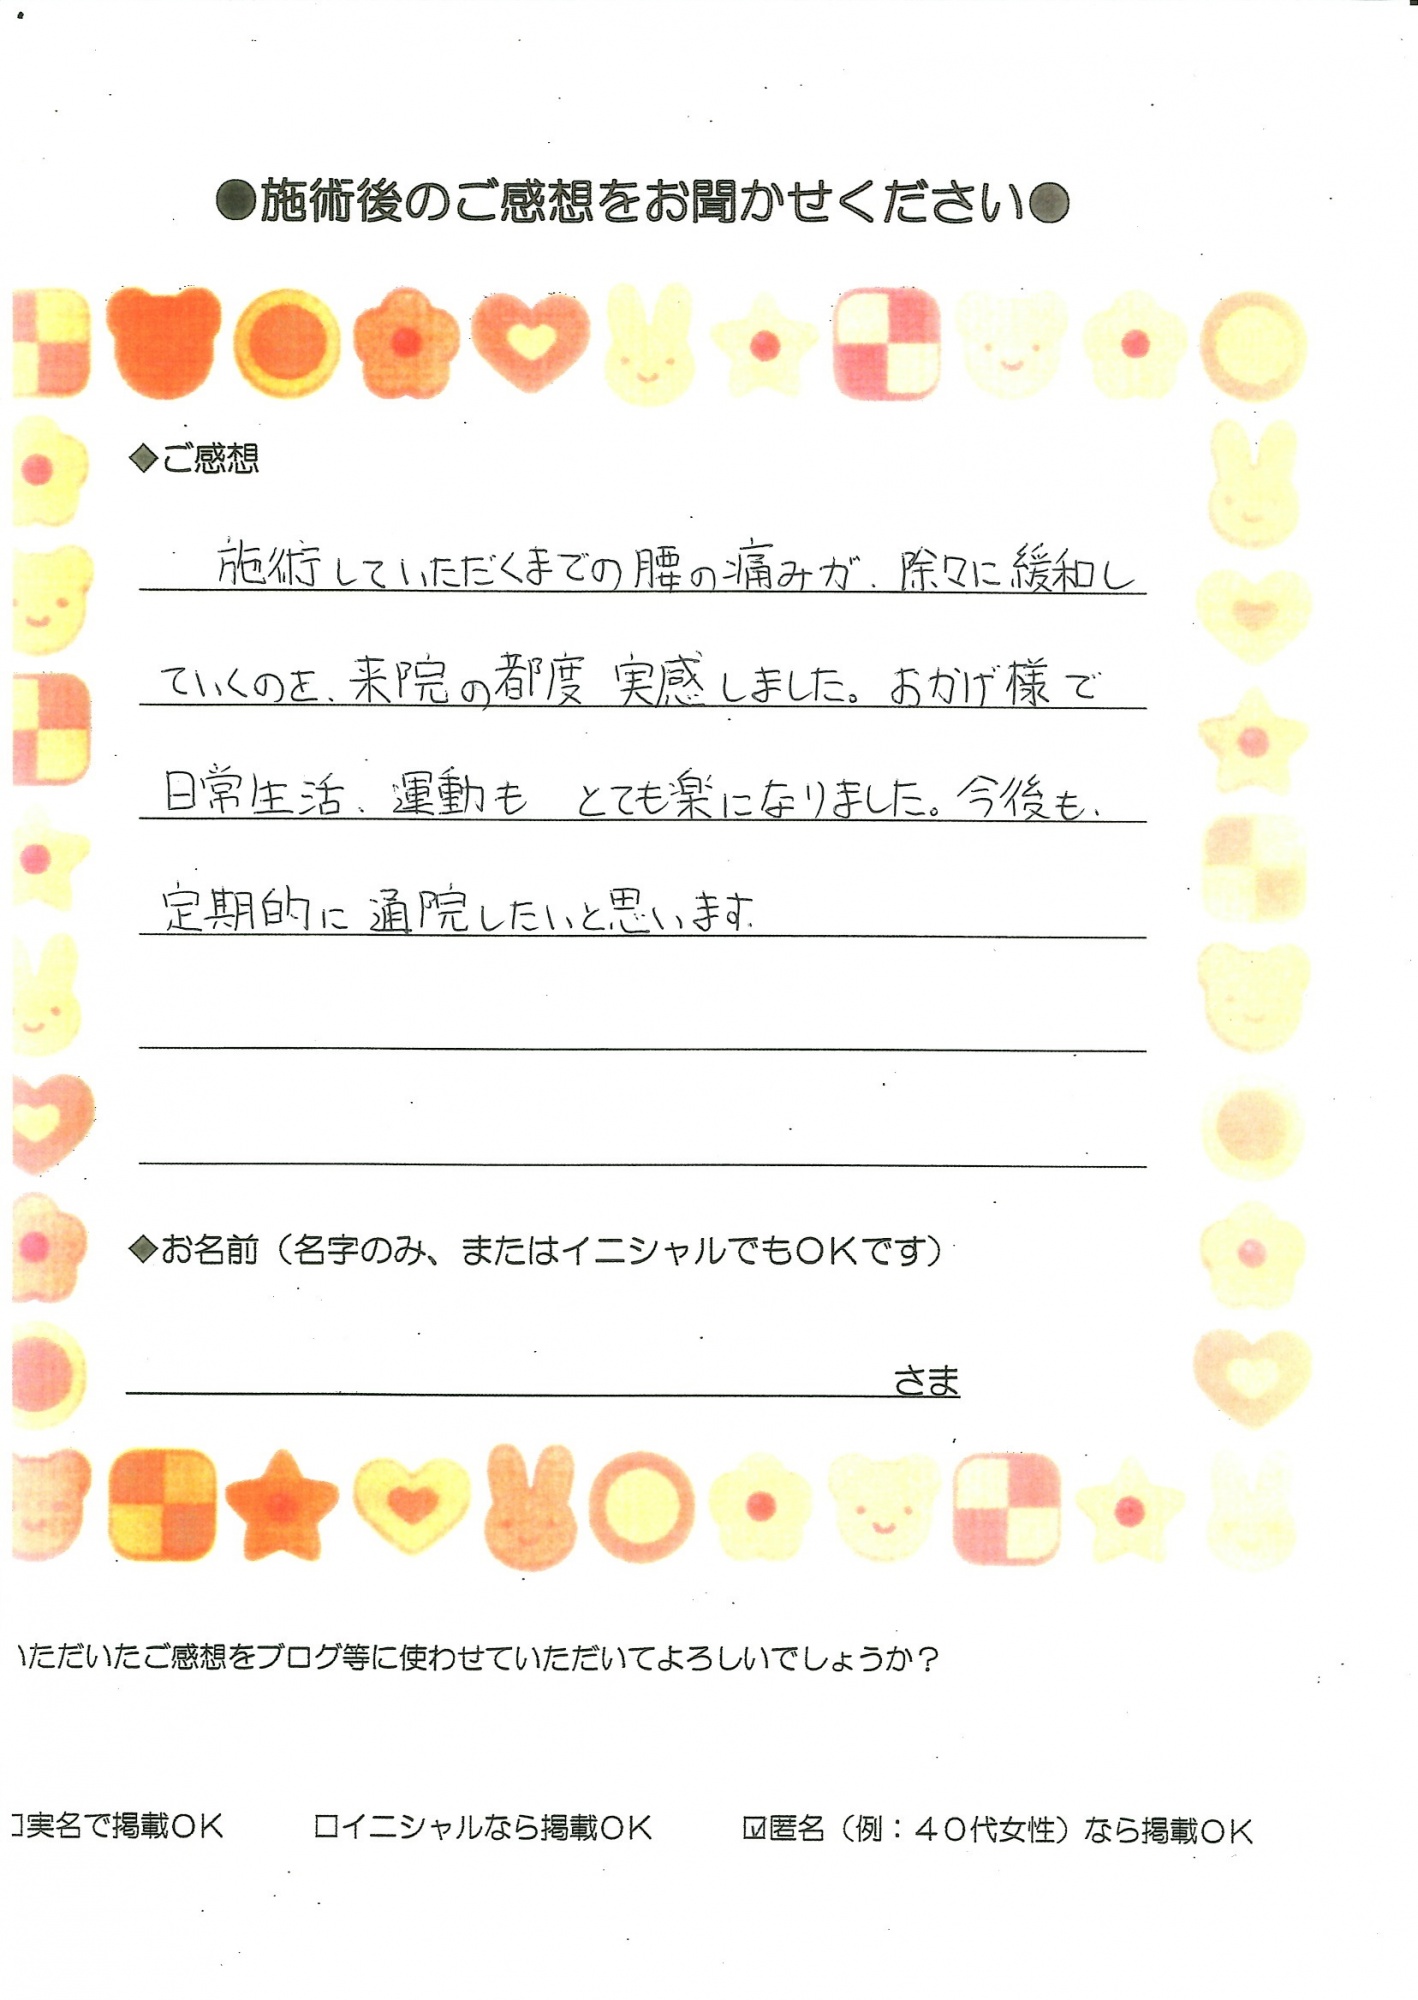 ●施術後のご感想をお聞かせください●
◆ご感想
施術していただくまでの腰の痛みが、除々に緩和し
ていくのを、来院の都度 実感しました。おかげ様で
日常生活、運動も とても楽になりました。今後も、
定期的に 通院したいと思います。
◆お名前（名字のみ、またはイニシャルでもOKです）
さま
いただいたご感想をブログ等に使わせていただいてよろしいでしょうか？
□実名で掲載OK □イニシャルなら掲載OK ☑匿名（例：４０代女性）なら掲載OK